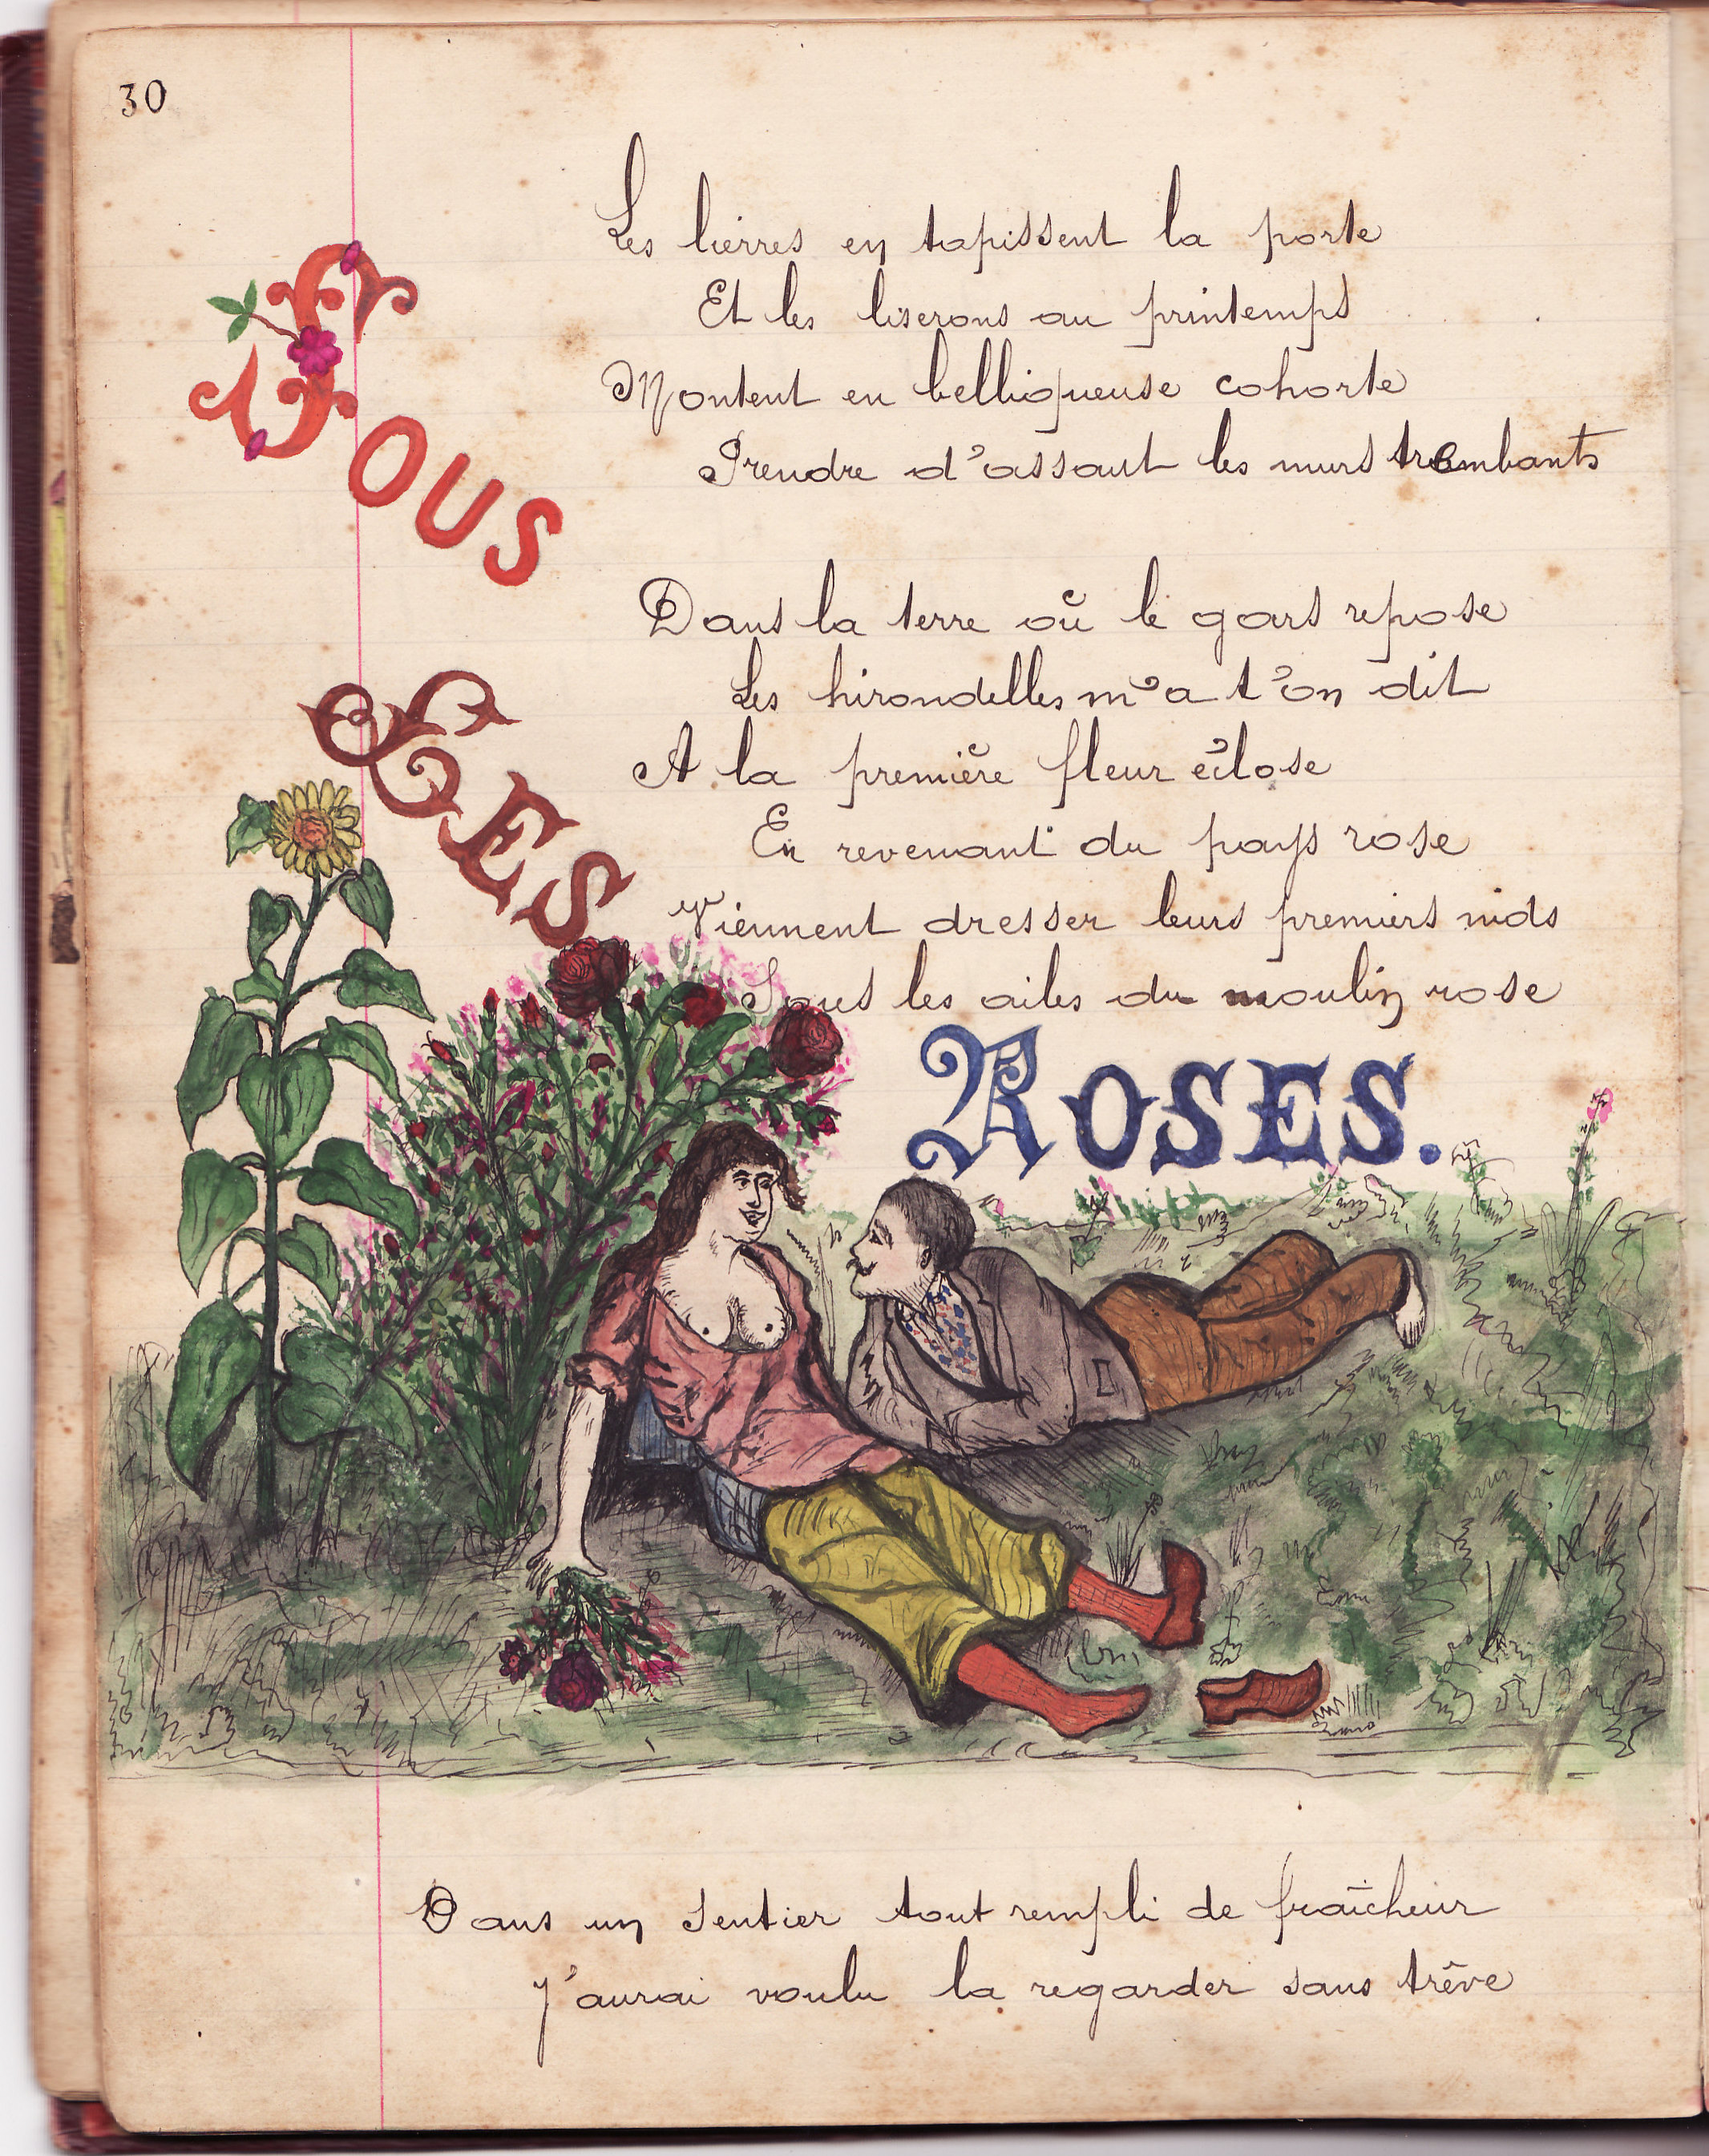 30
Les lierres en tapissent la porte
Et les liserons au printemps
Montent en belliqueuse cohorte
Prendre d'assaut les murs trembants
Dans la terre où le gars repose
Les hirondelles m'a t'on dit
A la première fleur éclose
En revenant du pays rose
Viennent dresser leurs premiers nids
Sous les ailes du moulin rose
SOUS
LES
ROSES.
Dans un sentier tout rempli de fraîcheur
J'aurai voulu la regarder sans trêve